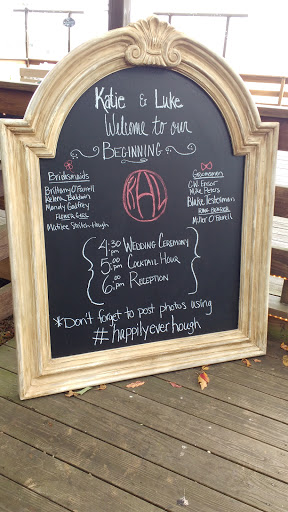 Katie & Luke
Welcome to our
BEGINNING
Bridesmaids
Brittany O'Farrell
Kelena Baldwin
Mandy Godfrey
FLOWER GIRL
Matilee Stallen-Hough
Groomsmen
C.W. Ensor
Mike Peters
Blake Testerman
RING BEARER
Miller O'Farrell
4:30 pm WEDDING CEREMONY
5:00 pm COCKTAIL HOUR
6:00 pm RECEPTION
*Don't forget to post photos using
#happilyeverhough